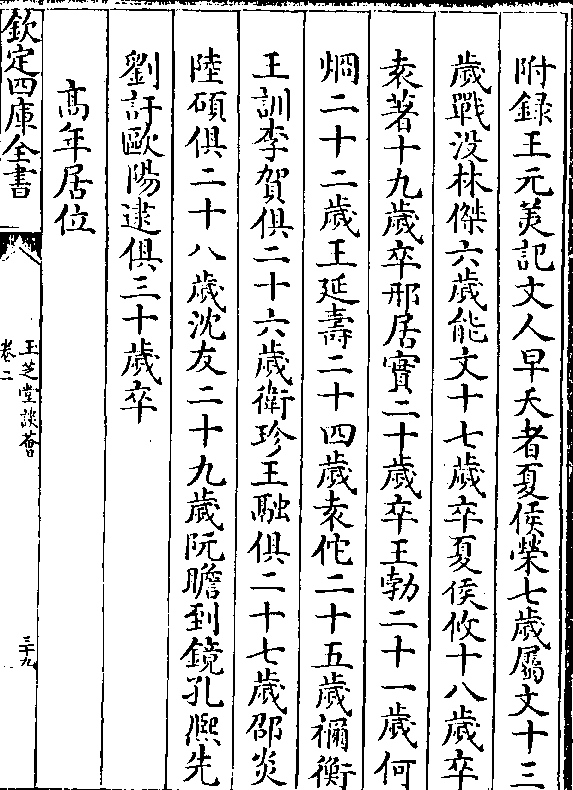 附録王元美記文人早夭者夏侯榮七歲屬文十三
歲戰没林傑六歲能文十七歲卒夏侯攸十八歲卒
袁著十九歲卒邢居實二十歲卒王勃二十一歲何
烱二十二歲王延壽二十四歲袁佗二十五歲禰衡
王訓李賀俱二十六歲衛玠王融俱二十七歲邵炎
陸碩俱二十八歲沈友二十九歲阮瞻到鏡孔熈先
劉訏歐陽建俱三十歲卒
高年居位
欽定四庫全書
玉芝堂談薈
卷二
三十九